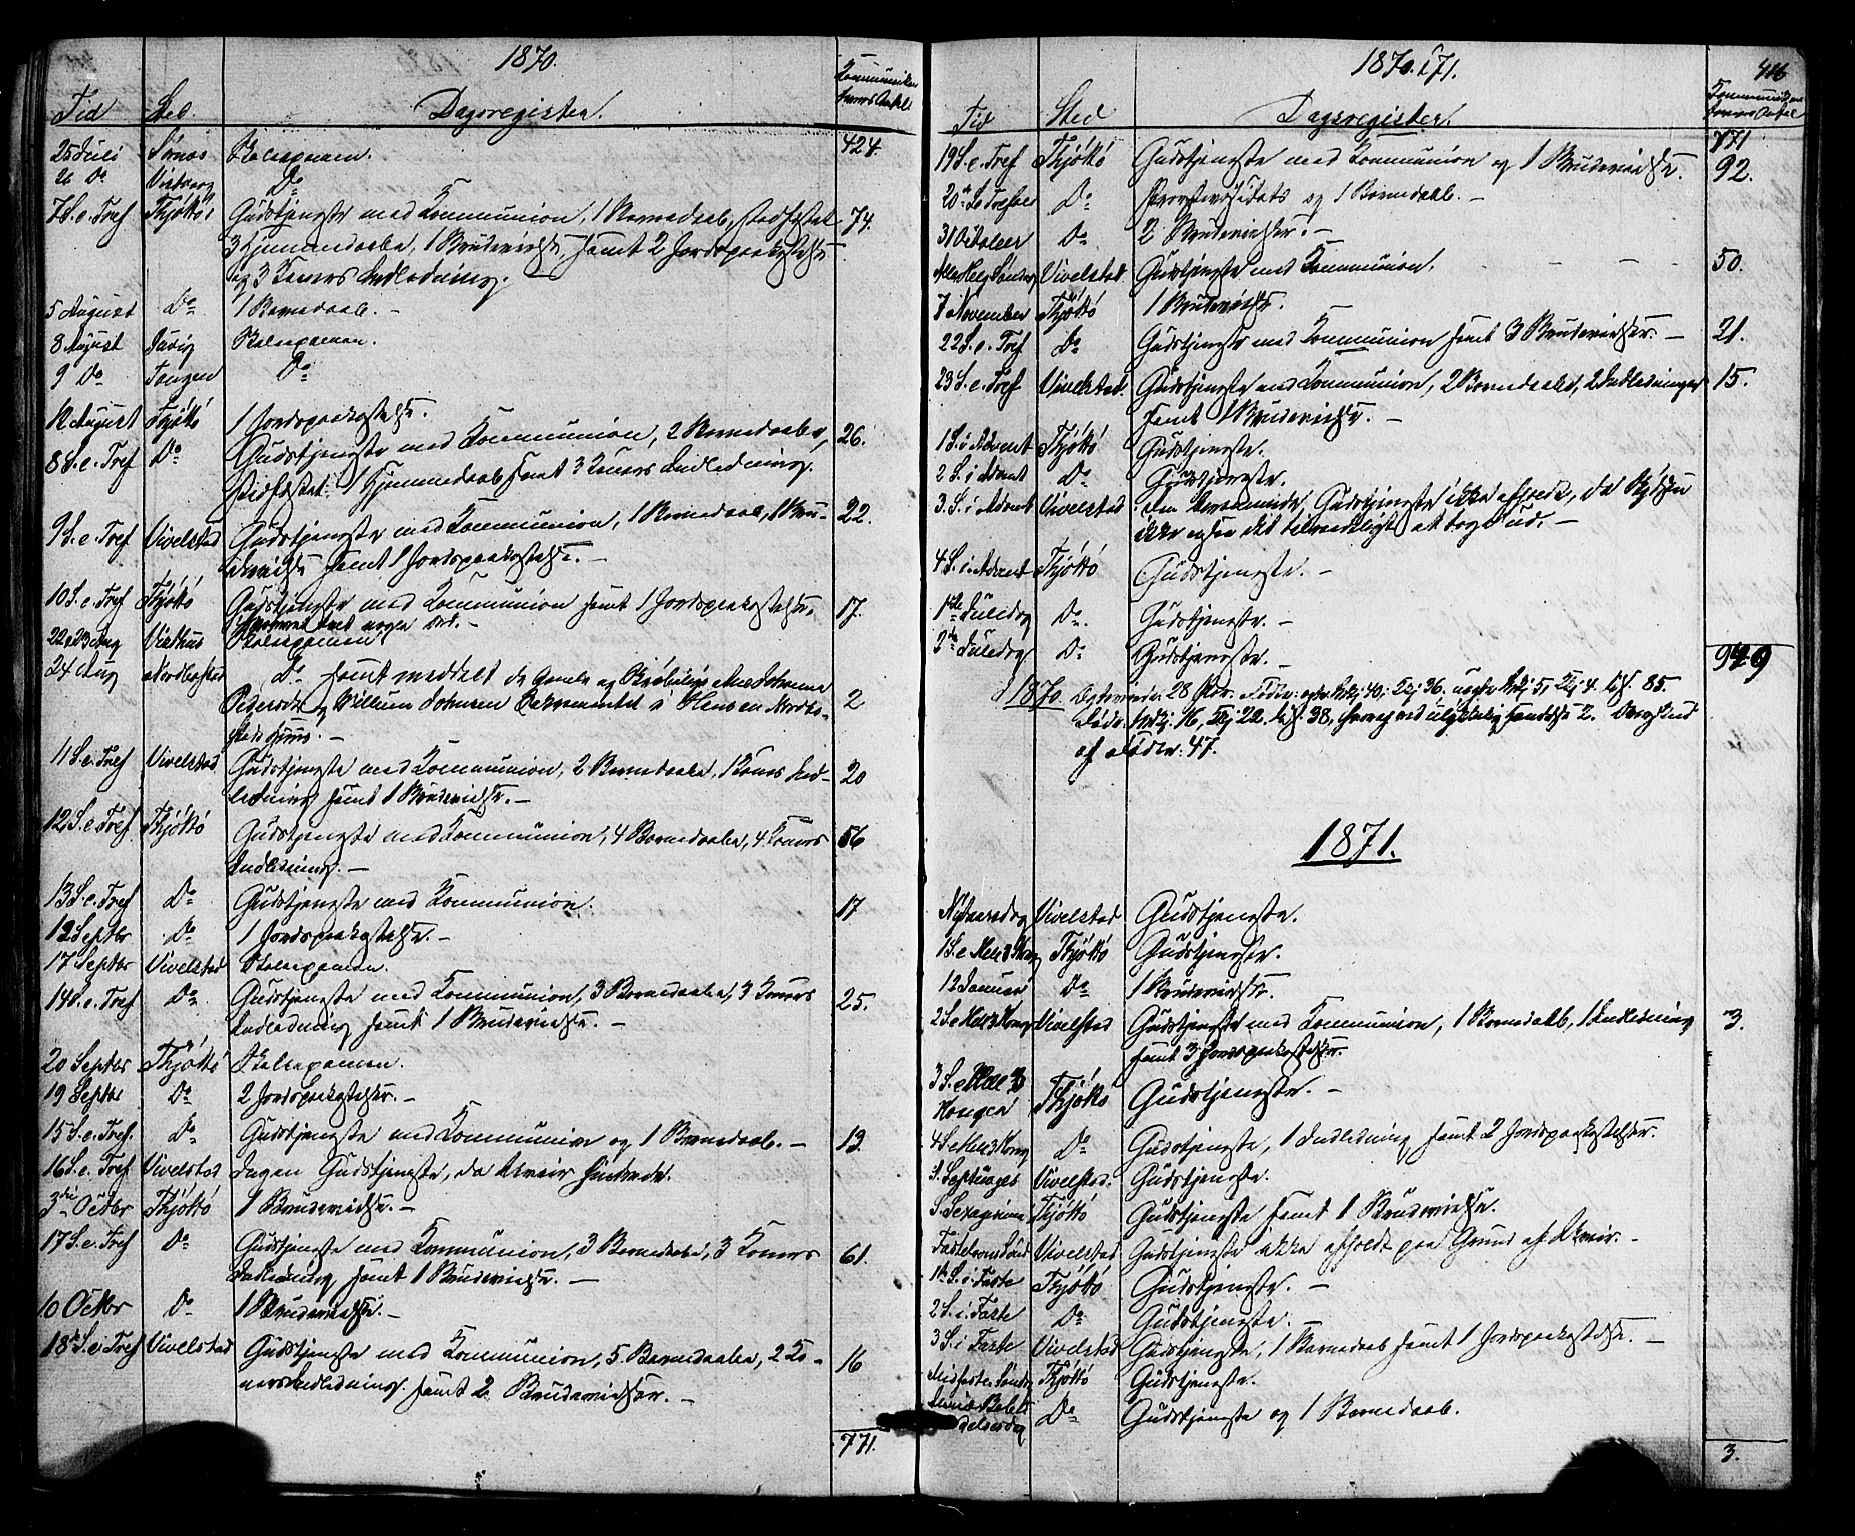 1870.
Tid Sted Dagsregister. Kommunikanternes Antal
424.
25 Juli Skoleexamen.
26 Do Do
7 S. e. Tref Thjøttø Gudstjeneste med Kommunion, 1 Barnedaab, stadfæstet 74.
3 Hjemmedaaber, 1 Brudevielse, samt 2 Jordspaakastelser
og 3 Koners Indledning.
5 August Do 1 Barnedaab. -
8 August Skoleexamen.
9 Do Tangen Do
12 August Thjøttø 1 Jordspaakastelse.
8 S. e. Tref Do Gudstjeneste med Kommunion, 2 Barnedaaber, 26.
stadfæstet 1 Hjemmedaab samt 3 Koners Indledning.
9 S. e. Tref Vivelstad Gudstjeneste med Kommunion, 1 Barnedaab, 1 Bru- 22.
devielse samt 1 Jordspaakastelse. -
10 S. e. Tref Thjøttø Gudstjeneste med Kommunion samt 1 Jordspaakastelse. 17.
22 & 23 Aug Skoleexamen.
24 Aug Do samt meddelt de Gamle og Ane Johanna
Pedersdr og Willum Johnsen Sakramentet i Hansen Nord- 2
Huus. -
11 S. e. Tref Vivelstad Gudstjeneste med Kommunion, 2 Barnedaabe, 1 Kones Ind- 20
ledning samt 1 Brudevielse. -
12 S. e. Tref Thjøttø Gudstjeneste med Kommunion, 4 Barnedaabe, 4 Koners 56
Indledning. -
13 S. e. Tref Do Gudstjeneste med Kommunion. 17
12 Septbr Do 1 Jordspaakastelse. -
17 Septbr Vivelstad Skoleexamen.
14 S. e. Tref Do Gudstjeneste med Kommunion, 3 Barnedaabe, 3 Koners 25.
Indledning samt 1 Brudevielse. -
20 Septbr Thjøttø Skoleexamen.
19 Septbr Do 2 Jordspaakastelser. -
15 S. e. Tref. Do Gudstjeneste med Kommunion og 1 Barnedaab. - 13.
16 S. e. Tref Vivelstad Ingen Gudstjeneste, da Uveir hindrede.
3die Octbr Thjøttø 1 Brudevielse. -
17 S. e. Tref Do Gudstjeneste med Kommunion, 3 Barnedaabe, 3 Koners 61.
Indledning samt 1 Brudevielse. -
10 Octbr Do 1 Brudevielse. -
18de S. e. Tref Vivelstad Gudstjeneste med Kommunion, 5 Barnedaabe, 2 Ko- 16
ners Indledning samt 2 Brudevielser. -
771.
1870. & 71. 416
Tid Sted Dagsregister. Kommunikanternes Antal
771
19 S. e. Tref Thjøttø Gudstjeneste med Kommunion og 1 Brudevielse. 92.
20de S. e. Tref Do Provstevisitats og 1 Barnedaab. -
31 October Do 2 Brudevielser. -
Alle Helg. Søndag Vivelstad Gudstjeneste med Kommunion. - - - 50.
7 November Thjøttø 1 Brudevielse.
22 S. e. Tref Do Gudstjeneste med Kommunion samt 3 Brudevielser. - 21.
23 S. e. Tref Vivelstad Gudstjeneste med Kommunion, 2 Barnedaabe, 2 Indledninger 15.
samt 1 Brudevielse. -
1 S. i Advent Thjøttø Gudstjeneste.
2 S. i Advent Do Gudstjeneste.
3. S. i Advent Vivelstad Den berammede Gudstjeneste ikke afholdt, da
ikke ansaa det tilraadeligt at tage ud. -
4 S. i Advent Thjøttø Gudstjeneste. -
1ste Juledag Do. Gudstjeneste. -
2den Juledag Do Gudstjeneste. -
949
1870. 28 Par. Fødte: ægte Mkj 40, Qkj 36, uægte Mkj 5, Qkj 4. tils. 85.
Døde: Mkj. 16, Qkj 22. tils. 38, hvoraf ved ulykkelig Hændelse 2.
af Fødte: 47.
1871.
Nytaarsdag Vivelstad Gudstjeneste.
1 S. e. Hell. 3 Kong Thjøttø Gudstjeneste.
12 Januar Do 1 Brudevielse.
2 S. e. Hel. 3 Kong Vivelstad Gudstjeneste med Kommunion, 1 Barnedaab, 1 Indledning 3.
samt 3 Jordspaakastelser.
3 S. e. Hel. 3 Konger Thjøttø Gudstjeneste. -
4 S. e. Hel. 3 Kong Do Gudstjeneste, 1 Indledning samt 2 Jordspaakastelser.
S. Septuages Vivelstad. Gudstjeneste.
S. Sexagesima Thjøttø Gudstjeneste samt 1 Brudevielse.
Fastelavns Sønd Vivelstad Gudstjeneste ikke afholdt paa Grund af Uveir. -
1ste S. i Faste Thjøttø Gudstjeneste. -
2 S. i. Faste Do Gudstjeneste. -
3 S. i Faste Vivelstad Gudstjeneste, 1 Barnedaab samt 1 Jordspaakastelse. -
Midfaste Søndag Thjøttø Gudstjeneste.
Mariæ Bebudelsesdag Do Gudstjeneste og 1 Barnedaab.
3.